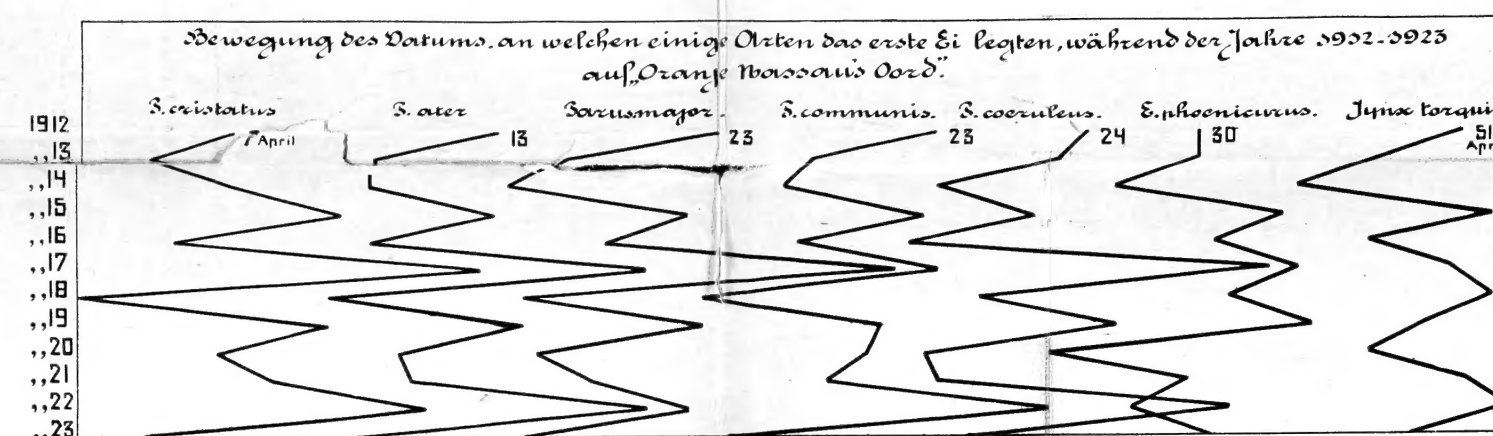 Bewegung des Datums. an welchen einige Arten das erste Ei legten, während der Jahre 1912-1923
auf „Oranje Nassau's Oord".
P. cristatus P. ater Parus major. P. communis. P. coeruleus. E. phoenicurus. Jynx torqui
1912
7 April 13 23 23 24 30
,,13
,,14
,,15
,,16
,,17
,,18
,,19
,,20
,,21
,,22
,,23